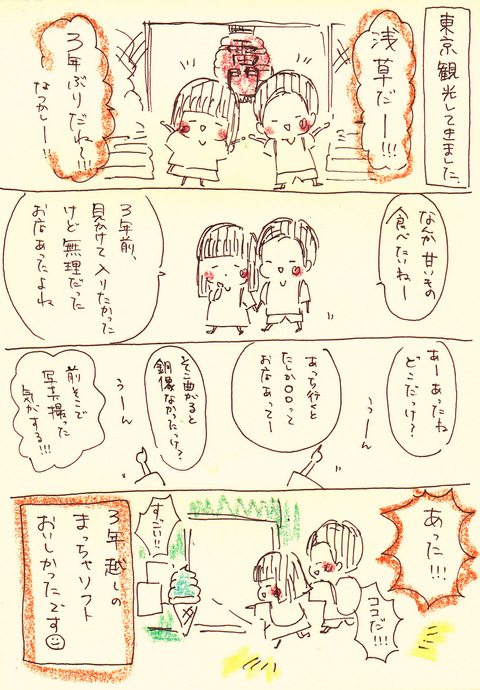 東京観光してきました。
浅草だー!!!
雷門
3年ぶりだね~!!!
なつかしー!!
なんか甘いもの
食べたいねー
3年前、
見かけて入りたかった
けど無理だった
お店あったよね
あーあったね
どこだっけ?
うーん
あっち行くと
たしか〇〇って
お店あってー
そこ曲がると
銅像なかったっけ?
うーん
前そこで
写真撮った
気がする!!!
あった!!!
ココだ!!!
すごい!!
3年越しの
まっちゃソフト
おいしかったです☺